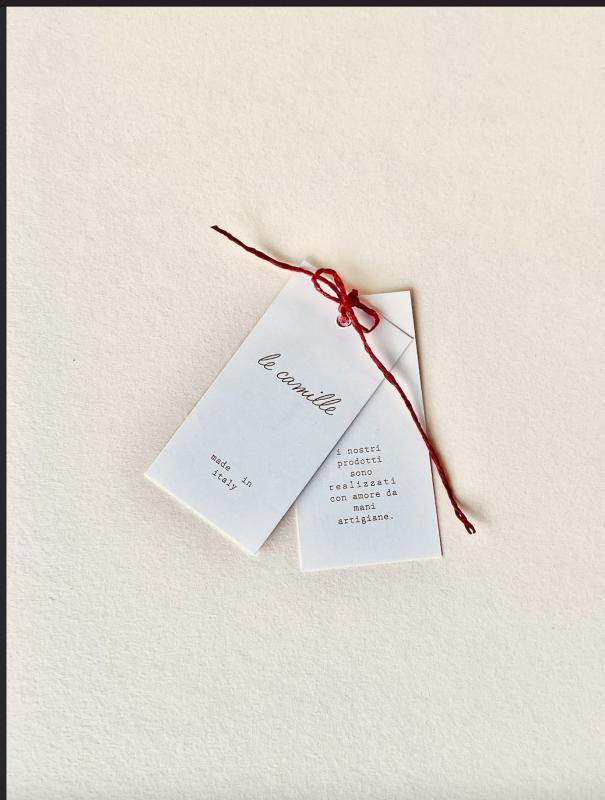 le camille
made in
italy
i nostri
prodotti
sono
realizzati
con amore da
mani
artigiane.